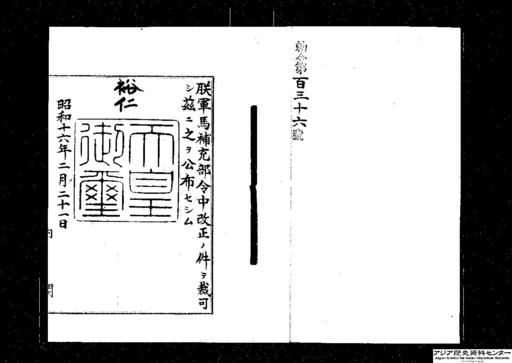 勅令第百三十六號
朕軍馬補充部令中改正ノ件ヲ裁可
シ茲ニ之ヲ公布セシム
裕仁
天皇
御璽
昭和十六年二月二十一日
内閣
アジア歴史資料センター
Japan Center for Asian Historical Records